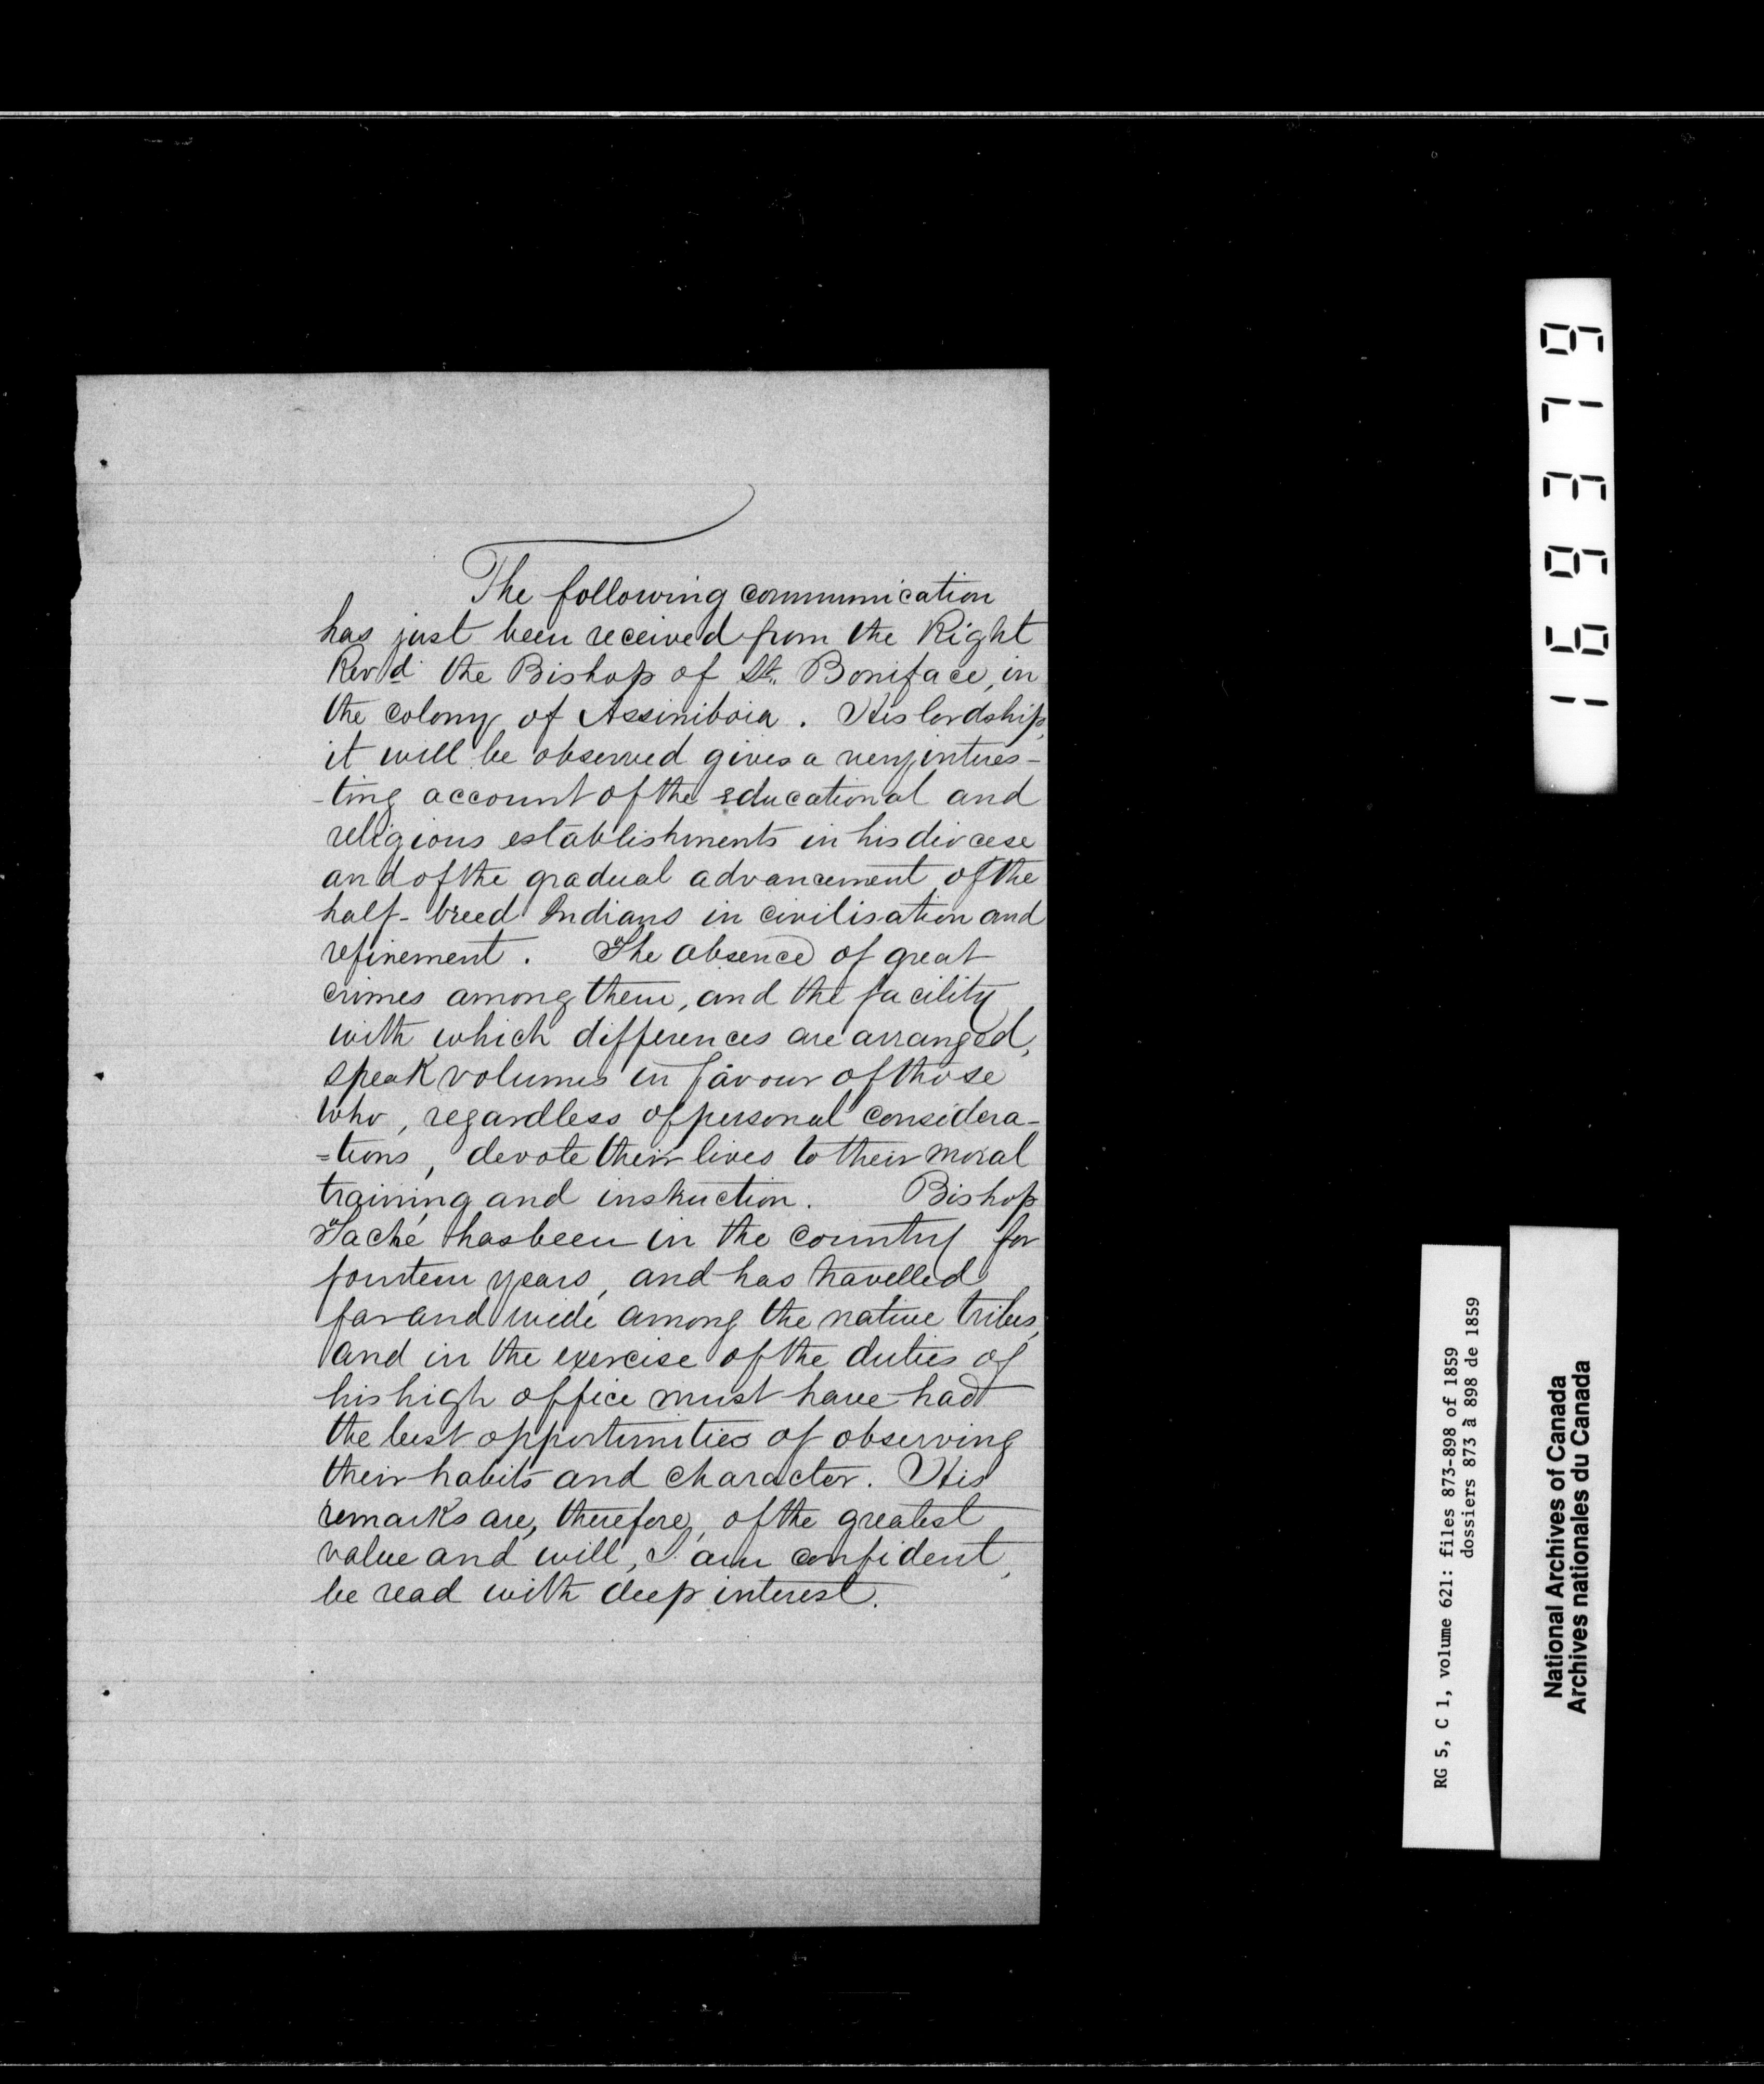 The following communication
has just been received from the Right
Rev'd the Bishop of St. Boniface, in
the colony of Assiniboia. His lordship,
it will be observed gives a very interes-
-ting account of the educational and
religious establishments in his diocese
and of the gradual advancement of the
half-breed Indians in civilisation and
refinement. The absence of great
crimes among them, and the facility
with which differences are arranged,
speak volumes in favour of those
who, regardless of personal considera-
=tions, devote their lives to their moral
training and instruction. Bishop
Taché has been in the country for
fourteen years, and has travelled
far and wide among the native tribes,
and in the exercise of the duties of
his high office must have had
the best opportunities of observing
their habits and character. His
remarks are, therefore, of the greatest
value and will, I am confident,
be read with deep interest.
169379
RG 5, C 1, volume 621: files 873-898 of 1859
dossiers 873 à 898 de 1859
National Archives of Canada
Archives nationales du Canada